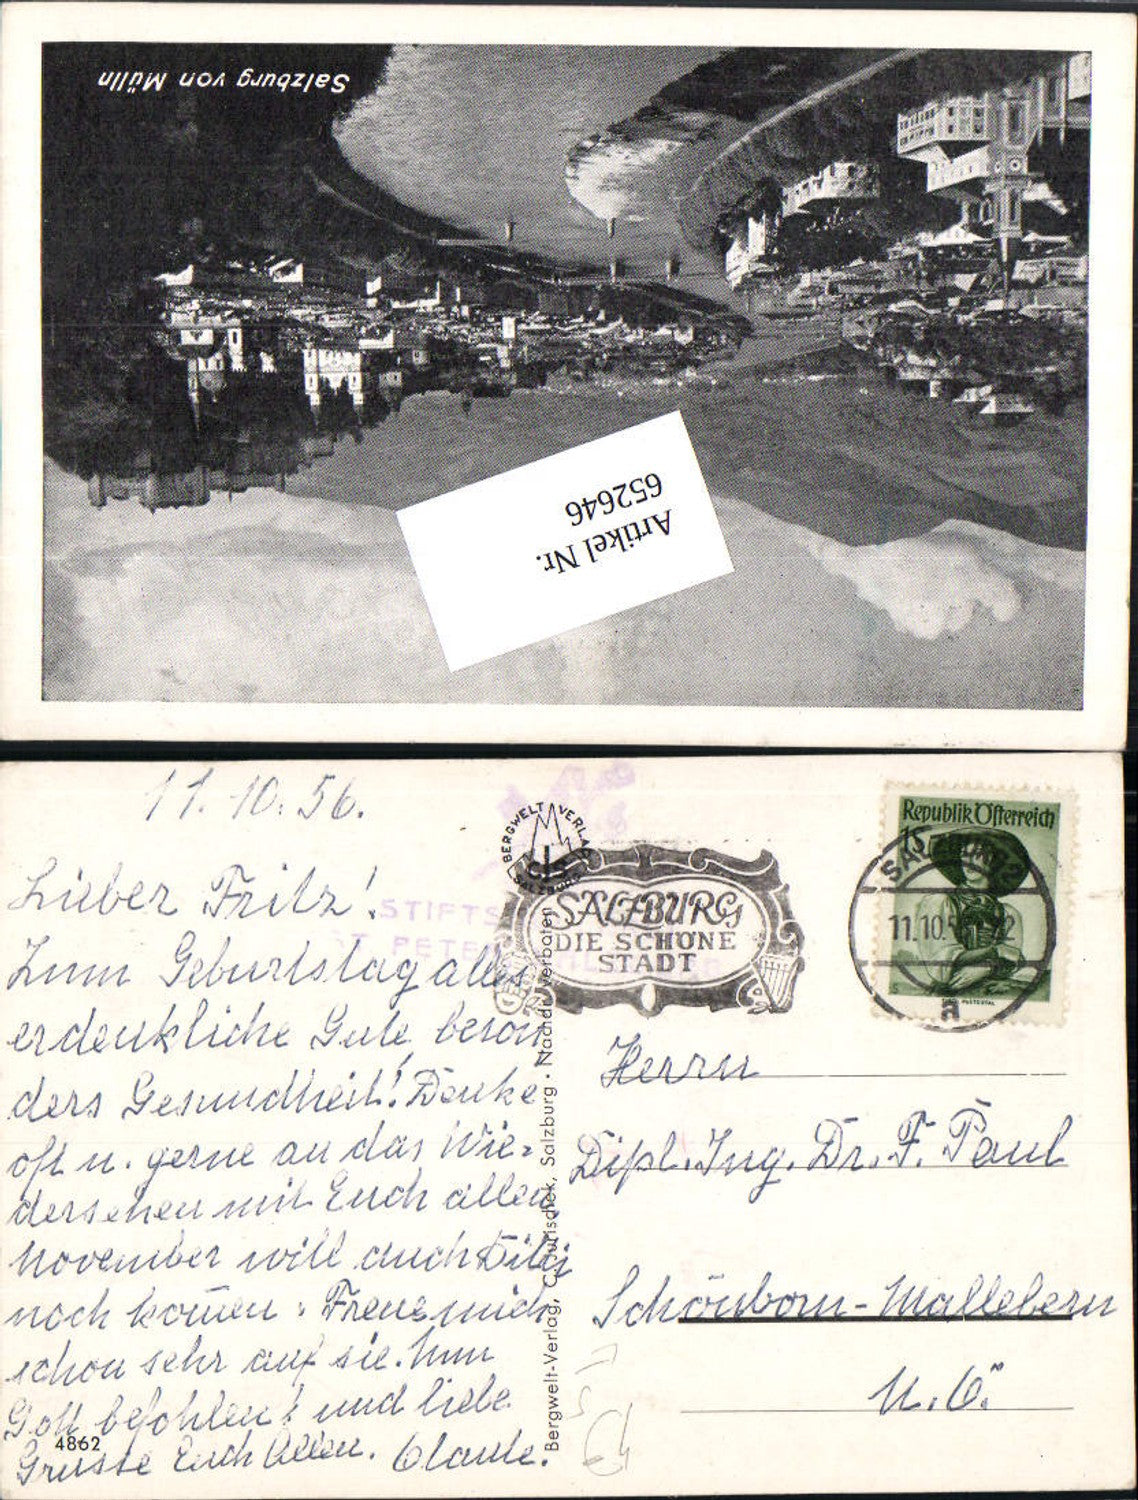 Salzburg von Mülln
Artikel Nr.
652646
11.10.56.
Lieber Fritz!
Zum Geburtstag alles
erdenkliche Gute beson
ders Gesundheit! Denke
oft u. gerne an das Wie-
dersehen mit Euch allen,
November will auch
noch kom̄en. Freue mich
schon sehr auf sie. Nun
Gott befohlen! und liebe
Grüsse Euch Allen.
4862
BERGWELT VERLAG
CJS
SALZBURG
STIFTS
ST. PETER
SALZBURG
DIE SCHÖNE
STADT
Republik Österreich
1S
SALZBURG 2
11.10.5
a
Bergwelt-Verlag, C. Jurischek, Salzburg · Nachdr. verboten
Herrn
Dipl. Ing. Dr. F. Paul
Schönborn-Mallebern
N.Ö.